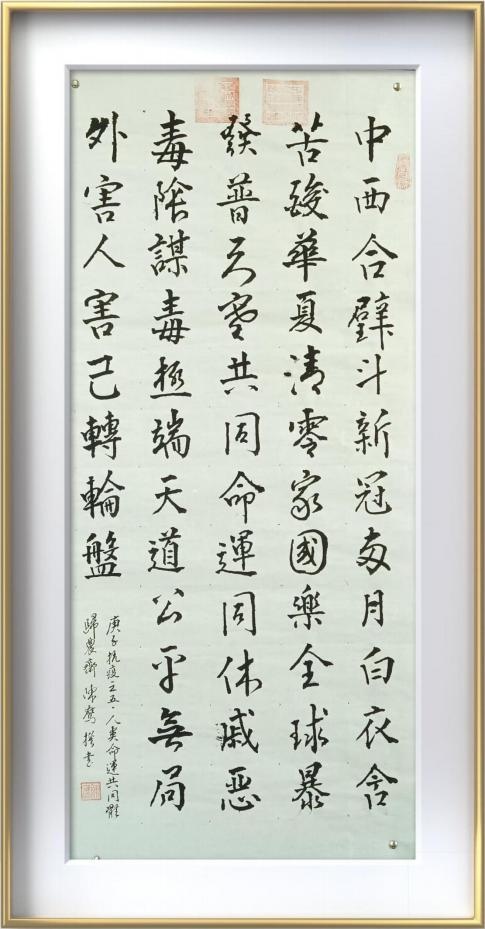 中西合璧斗新冠两月白衣舍
苦駿華夏清零家國樂全球暴
發普天寒共同命運同休戚惡
毒陰謀毒極端天道公平無局
外害人害己轉輪盤
庚子抗疫之五·人类命運共同體
歸農齋 陈 撰书